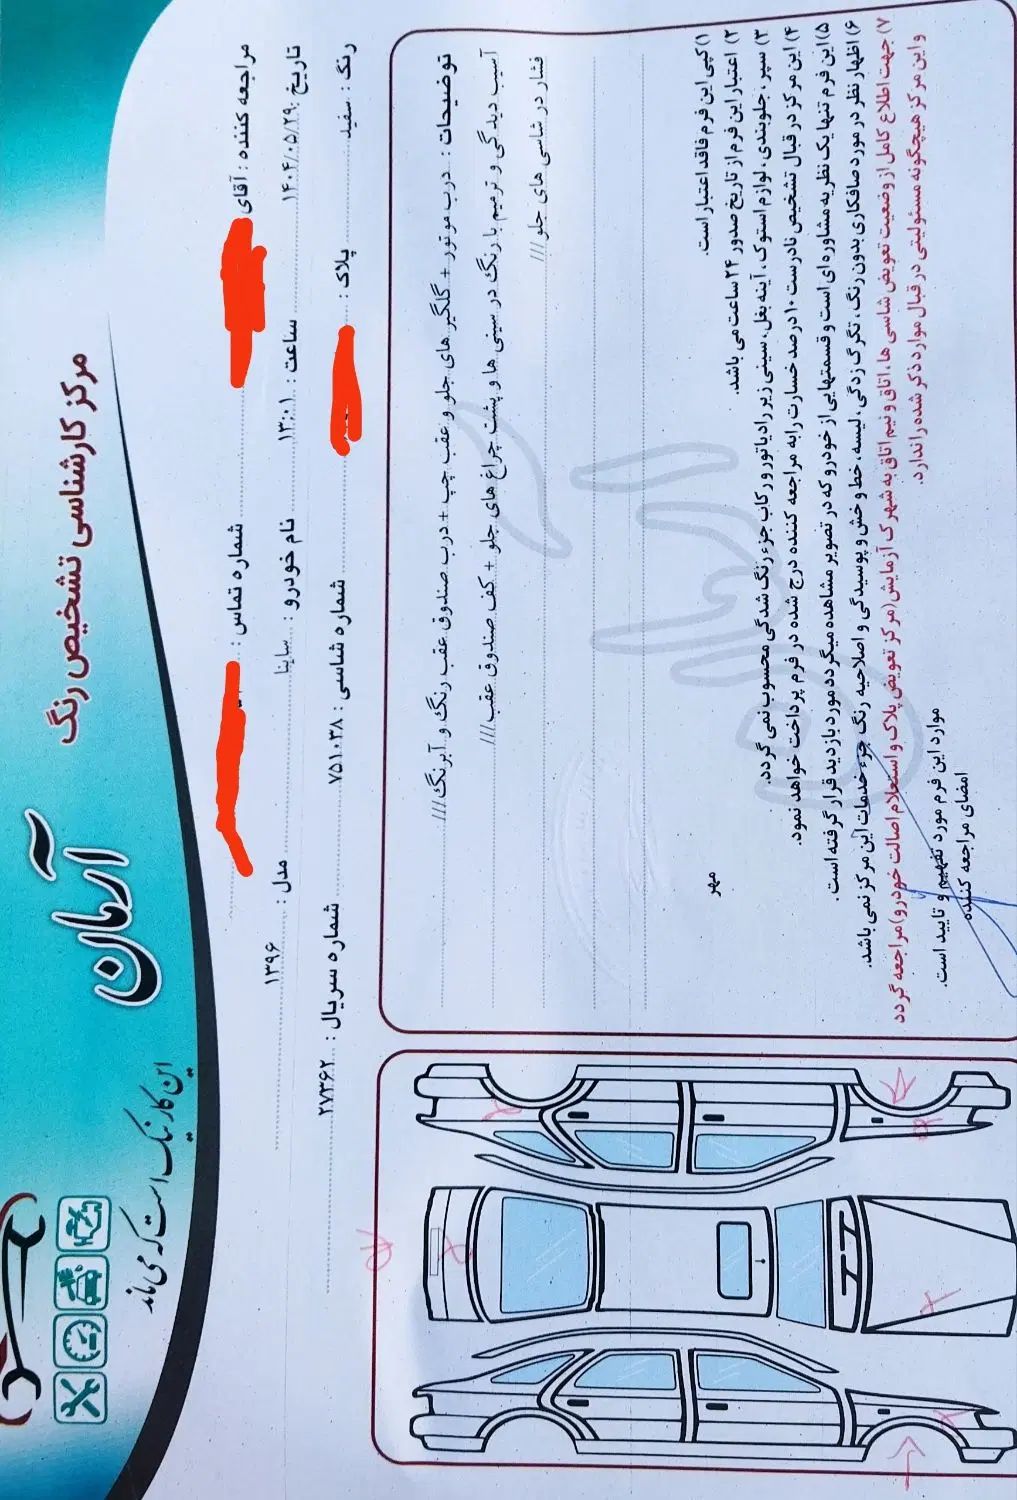 مرکز کارشناسی تشخیص رنگ
آرمان
این کار نیک است که می ماند
مراجعه کننده : آقای
شماره تماس :
تاریخ : ۱۴۰۴/۰۵/۲۹ ساعت : ۱۳:۰۱ نام خودرو : ساینا مدل : ۱۳۹۶
رنگ : سفید پلاک : شماره شاسی : ۷۵۱۰۳۸ شماره سریال : ۲۷۳۶۲
توضیحات : درب موتور + گلگیر های جلو و عقب چپ + درب صندوق عقب رنگ و آبرنگ///
آسیب دیدگی و ترمیم با رنگ در سینی ها و پشت چراغ های جلو + کف صندوق عقب///
فشار در شاسی های جلو///
۱) کپی این فرم فاقد اعتبار است.
۲) اعتبار این فرم از تاریخ صدور ۲۴ ساعت می باشد.
۳) سپر، جلوبندی، لوازم استوک، آینه بغل، سینی زیر رادیاتور و رکاب جزء رنگ شدگی محسوب نمی گردد.
۴) این مرکز در قبال تشخیص نادرست ۱۰ درصد خسارت را به مراجعه کننده درج شده در فرم پرداخت خواهد نمود.
۵) این فرم تنها یک نظریه مشاوره ای است و قسمتهایی از خودرو که در تصویر مشاهده میگردد مورد بازدید قرار گرفته است.
۶) اظهار نظر در مورد صافکاری بدون رنگ، تگرگ زدگی، لیسه، خط و خش و پوسیدگی و اصلاحیه رنگ جزء خدمات این مرکز نمی باشد.
۷) جهت اطلاع کامل از وضعیت تعویض شاسی ها، اتاق و نیم اتاق به شهرک آزمایش (مرکز تعویض پلاک و استعلام اصالت خودرو) مراجعه گردد
و این مرکز هیچگونه مسئولیتی در قبال موارد ذکر شده را ندارد.
مهر
موارد این فرم مورد تفهیم و تایید است.
امضای مراجعه کننده